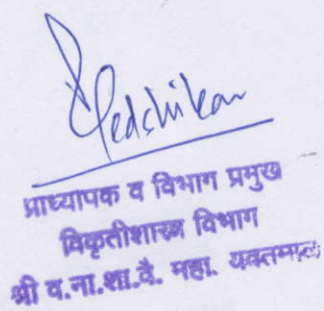 Pedchikar
प्राध्यापक व विभाग प्रमुख
विकृतीशास्त्र विभाग
श्री व.ना.शा.वै. महा. यवतमाळ